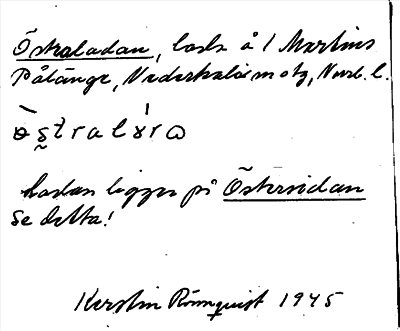 Östraladan, lada å 1 Martins
Pålänge, Nederkalix sn, Nurb. l.
Ladan ligger på Östersidan
Se detta!
Kerstin Rönnquist 1945